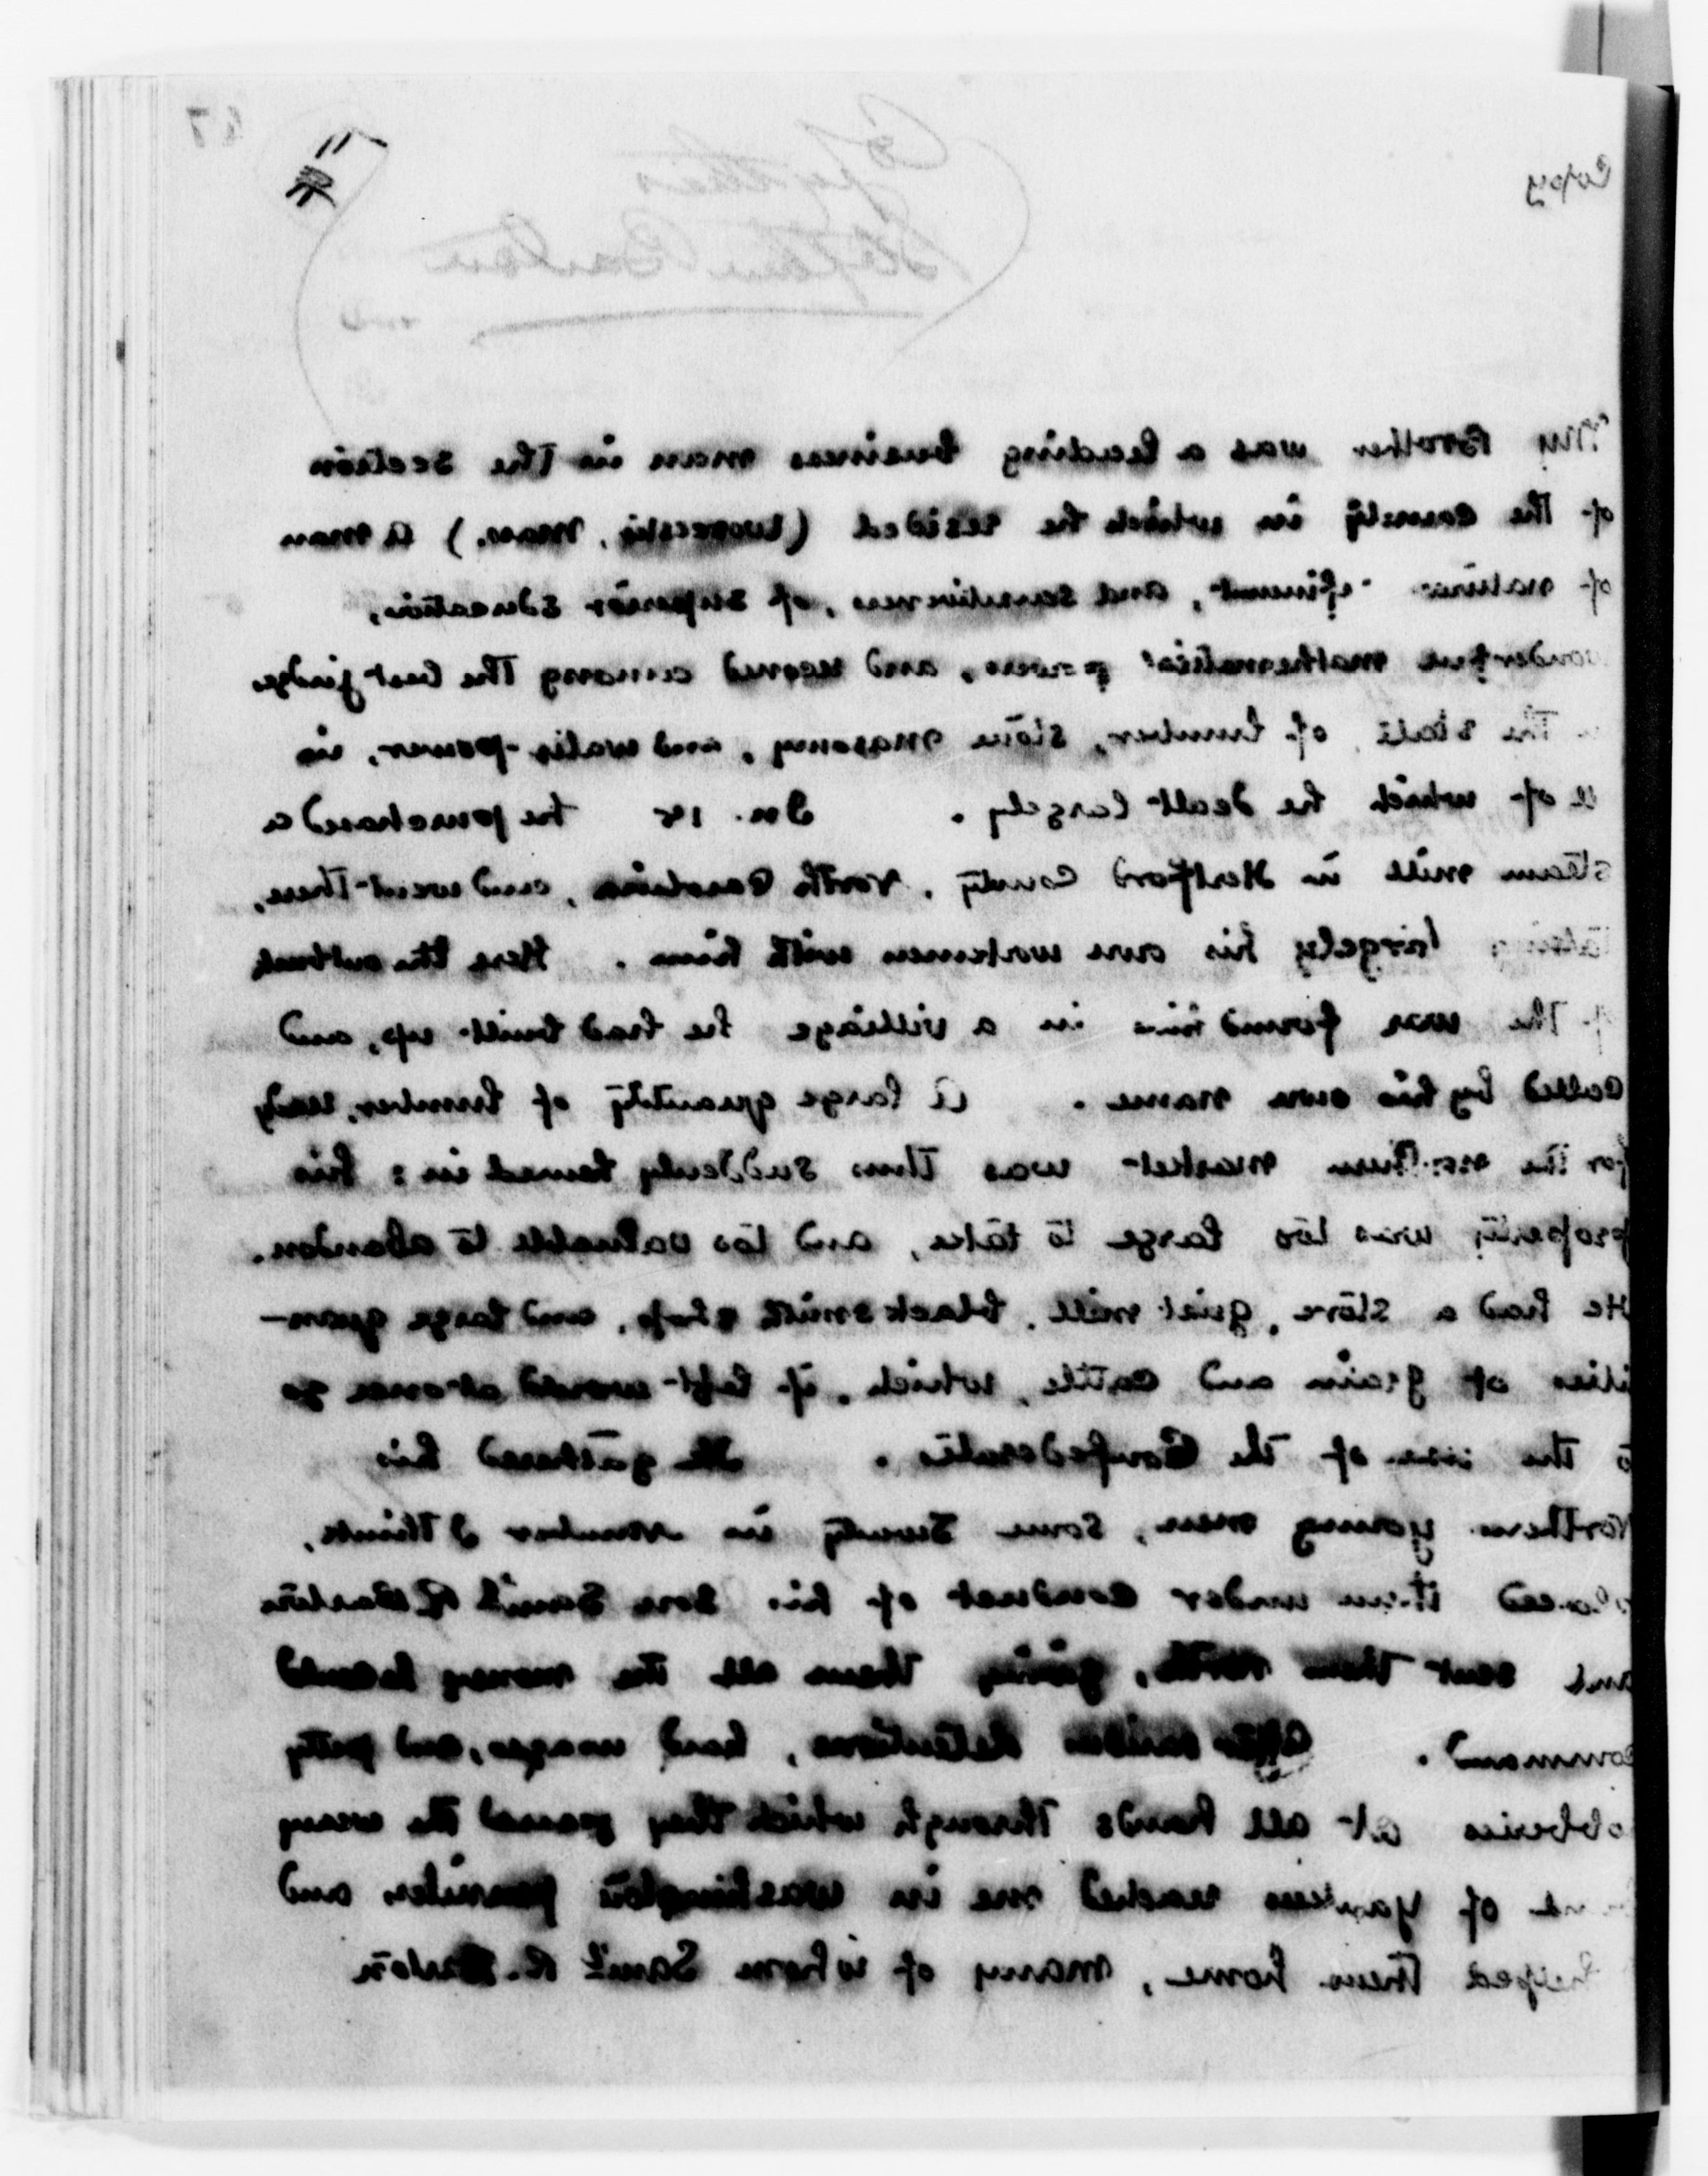 Copy
87
Stephen Barton
My Brother was a leading business man in the section
of the county in which he resided (Worcester, Mass.) A man
of nature refinement, and sensitiveness, of superior education,
wonderful mathematical powers, and second among the best judges
in the state, of lumber, stone masonry, and water-power, in
all of which he dealt largely. In 18 he purchased a
steam mill in Hertford County, North Carolina, and went there,
taking largely his own workmen with him. Here the outbreak
of the war found him in a villiage he had built up, and
called by his own name. A large quantity of lumber, ready
for the northern market was thus suddenly hemed in: his
property was too large to take, and too valuable to abandon.
He had a store, grist mill, blacksmith shop, and large quan-
tities of grain and cattle, which, if left would at once go
to the use of the Confederates. He gathered his
Northern young men, some twenty in number I think,
placed them under conduct of his son Saml R Barton
and sent them North, giving them all the money he could
command. After detentions, hard usages, and petty
robberies at all hands through which they passed the weary
of yankees reached me in Washington penniless and
I helped them home, many of whom Saml R. Barton